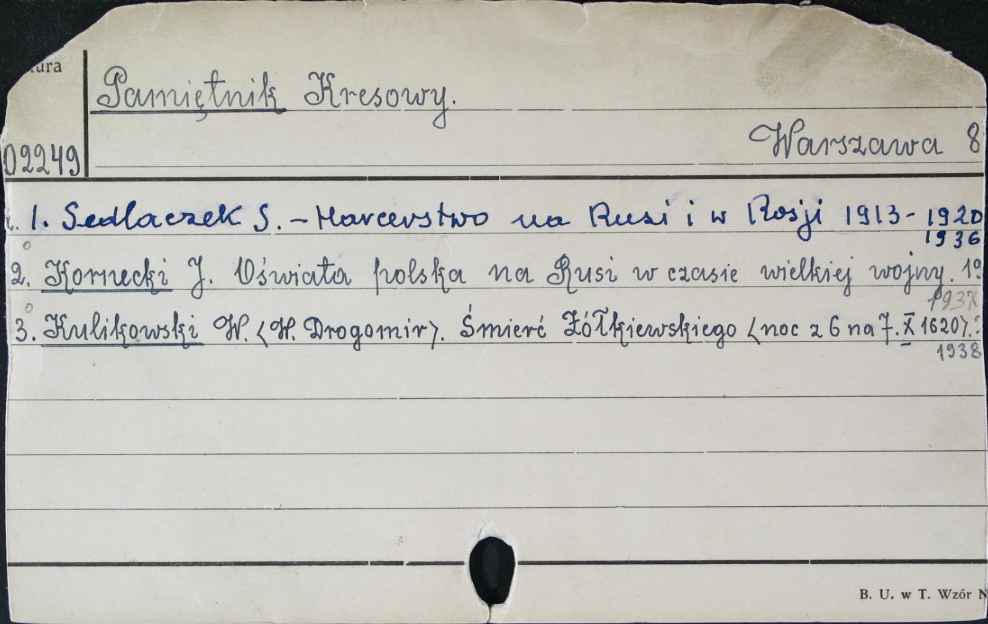 Pamiętnik Kresowy.
Warszawa 8
02249
1. Sedlaczek S. - Harcerstwo na Rusi i w Rosji 1913-1920
1936
2. Kornecki J. Oświata polska na Rusi w czasie wielkiej wojny.
1937
3. Kulikowski W. (W. Drogomir). Śmierć Żółkiewskiego (noc z 6 na 7. X 1620).
1938
B. U. w T. Wzór N